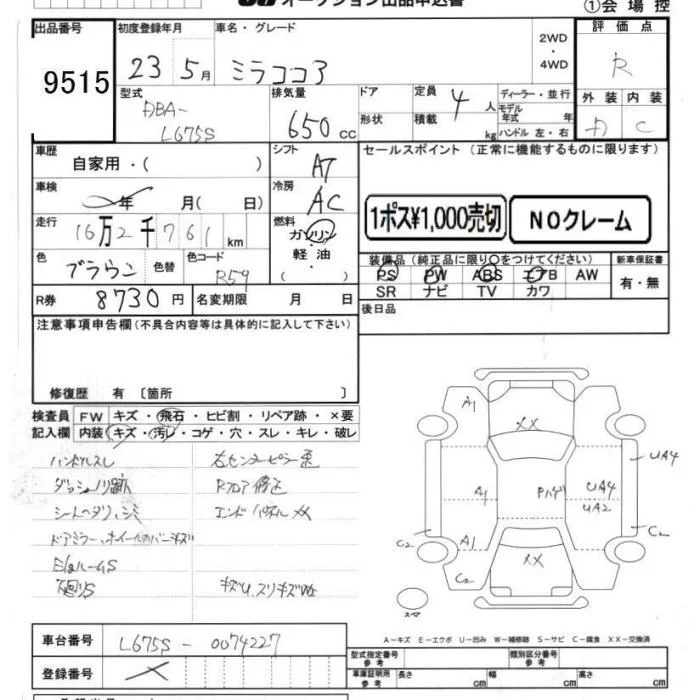 オークション出品申込書
①会場控
出品番号
9515
初度登録年月
23 5月
車名・グレード
ミラココア
2WD
・
4WD
評価点
R
外装 内装
A C
型式
DBA-
L675S
排気量
650 cc
ドア
形状
定員 4 人
積載 kg
ディーラー・並行
モデル年式 年
ハンドル 左・右
車歴
自家用・( )
シフト
AT
セールスポイント (正常に機能するものに限ります)
車検
年 月( 日)
冷房
AC
1ポス¥1,000売切
NOクレーム
走行
16万2千761km
燃料
ガソリン・
軽油・
( )
色
ブラウン
色替
色コード
R59
装備品 (純正品に限り○をつけてください)
PS PW ABS エアB AW
SR ナビ TV カワ
新車保証書
有・無
R券 8730円
名変期限 月 日
後日品
注意事項申告欄 (不具合内容等は具体的に記入して下さい)
修復歴 有 〔箇所 〕
検査員
記入欄
FW キズ・飛石・ヒビ割・リペア跡・×要
内装 キズ・汚レ・コゲ・穴・スレ・キレ・破レ
ハンドルスレ
ダッシュノリ跡
シートヘタリ、シミ
ドアミラー、ホイールカバーキズ
下回りS
右センターピラー歪
Rフロア修正
エンドパネルXX
A1
XX
A1
Pハゲ
UA4
UA2
UA4
C2
A1
C2
XX
C2
スペア
A-キズ E-エクボ U-凹み W-補修跡 S-サビ C-腐食 XX-交換済
車台番号
L675S - 0074227
登録番号
型式指定番号
参考
類別区分番号
参考
車庫証明用
参考
長さ cm
幅 cm
高さ cm